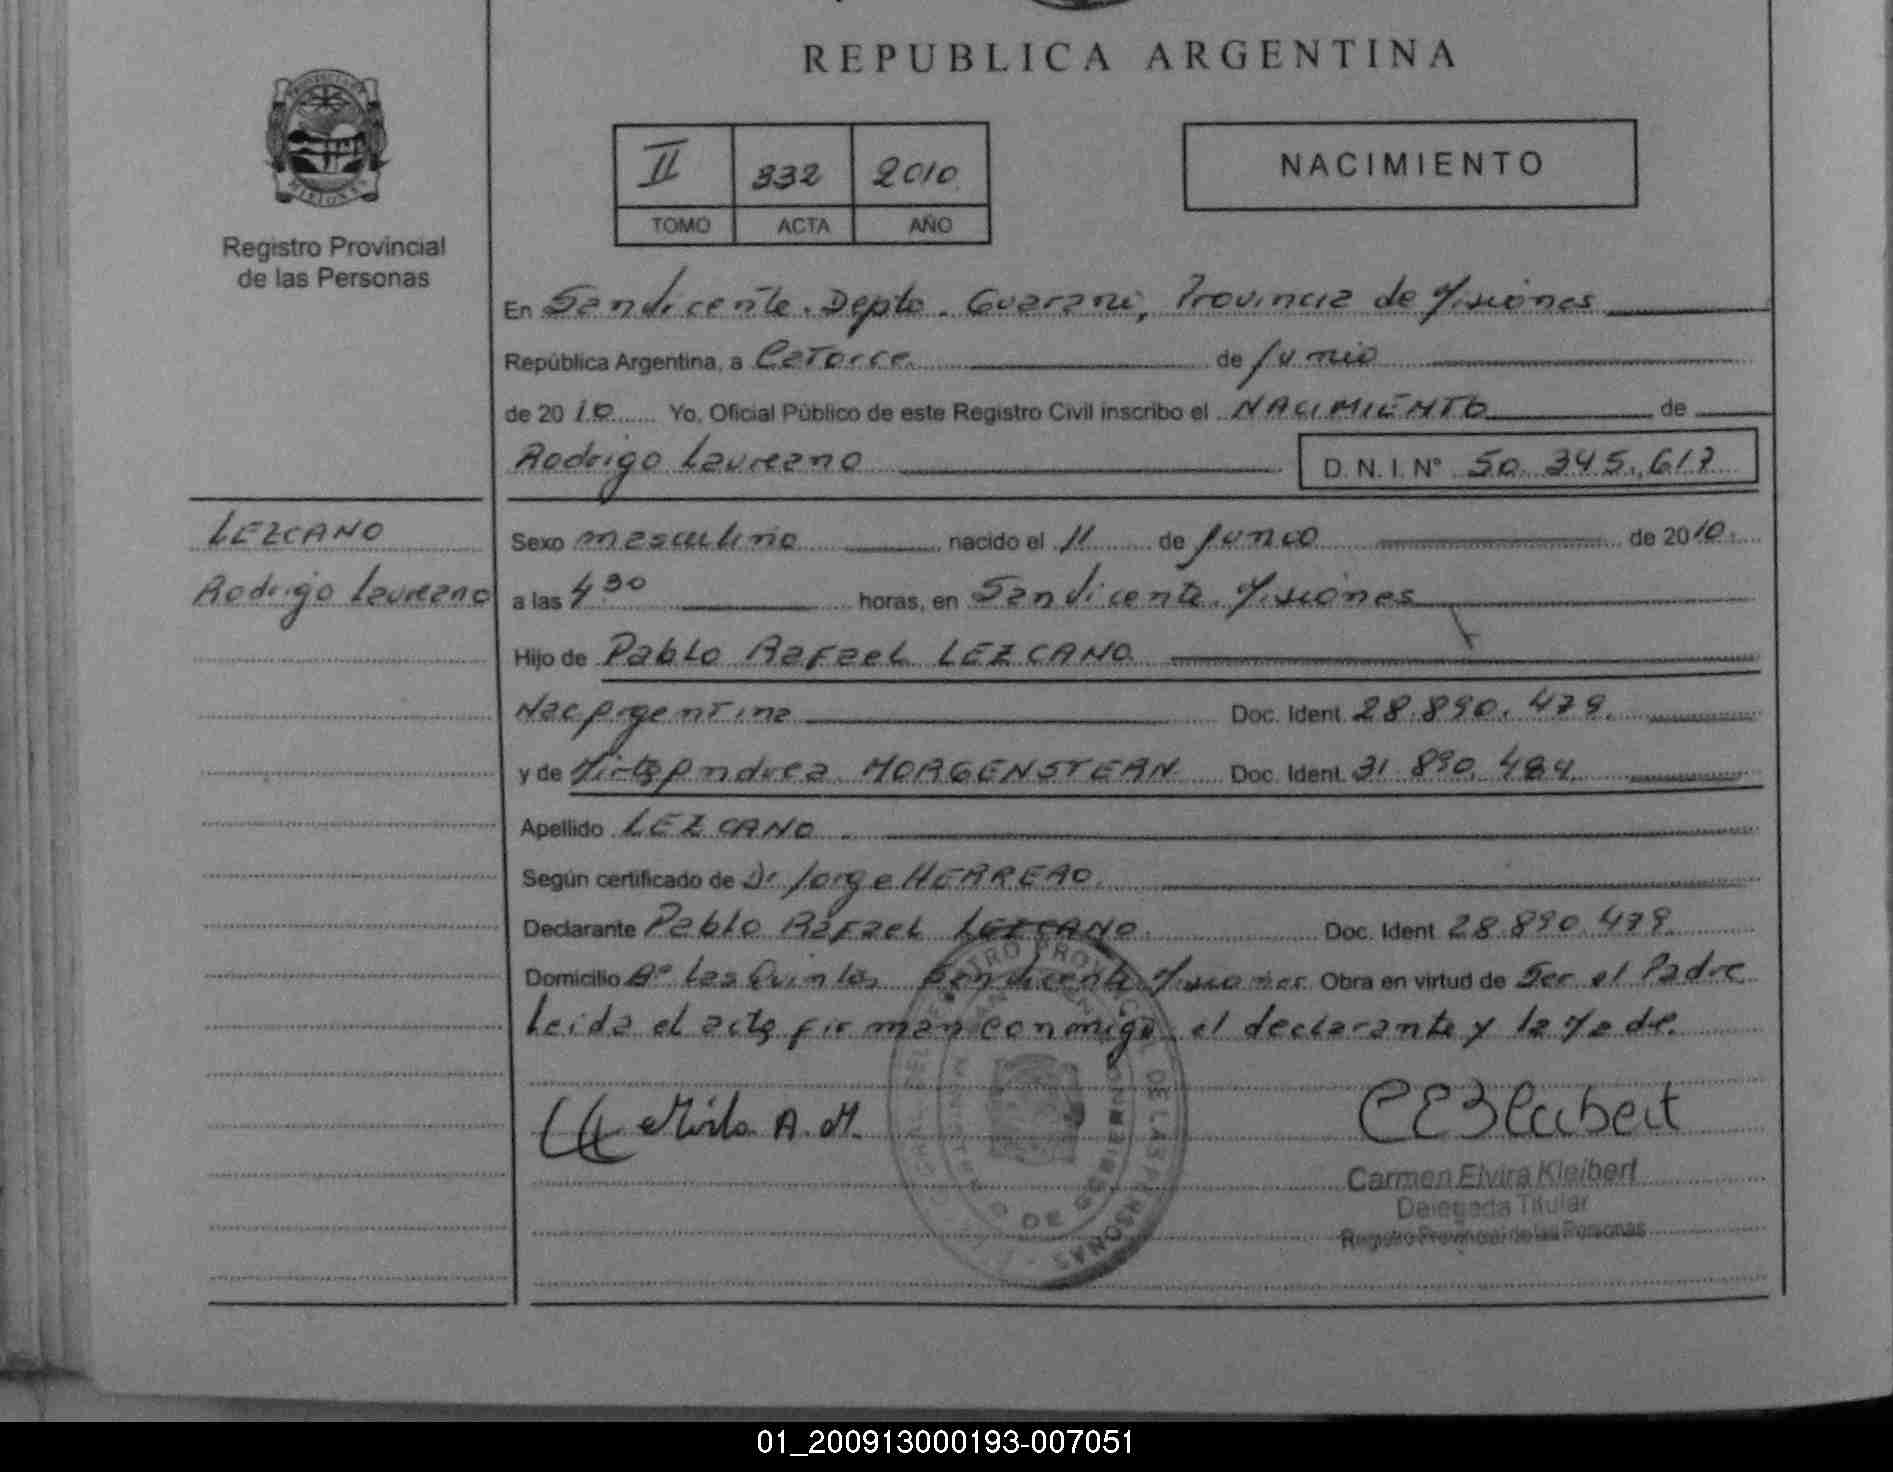 REPUBLICA ARGENTINA
II 332 2010
TOMO ACTA AÑO
NACIMIENTO
Registro Provincial
de las Personas
En San Vicente. Depto. Guarani, Provincia de Misiones
República Argentina, a Catorce de Junio
de 2010 Yo, Oficial Público de este Registro Civil inscribo el NACIMIENTO de
Rodrigo Laureano D. N. I. N° 50.345.617
LEZCANO
Rodrigo Laureano
Sexo masculino nacido el 11 de Junio de 2010.
a las 4 30 horas, en San Vicente. Misiones
Hijo de Pablo Rafael LEZCANO
Nac Argentina Doc. Ident. 28.890.479.
y de Mirta Andrea MORGENSTERN Doc. Ident. 31.890.484.
Apellido LEZCANO.
Según certificado de Dr Jorge HERRERO.
Declarante Pablo Rafael LEZCANO. Doc. Ident. 28.890.479.
Domicilio Aº Las Quintas San Vicente Misiones Obra en virtud de Ser el Padre
Leida el acta firman conmigo el declarante y la Madre.
Mirta A. M.
Carmen Elvira Kleibert
Delegada Titular
Registro Provincial de las Personas
01_200913000193-007051